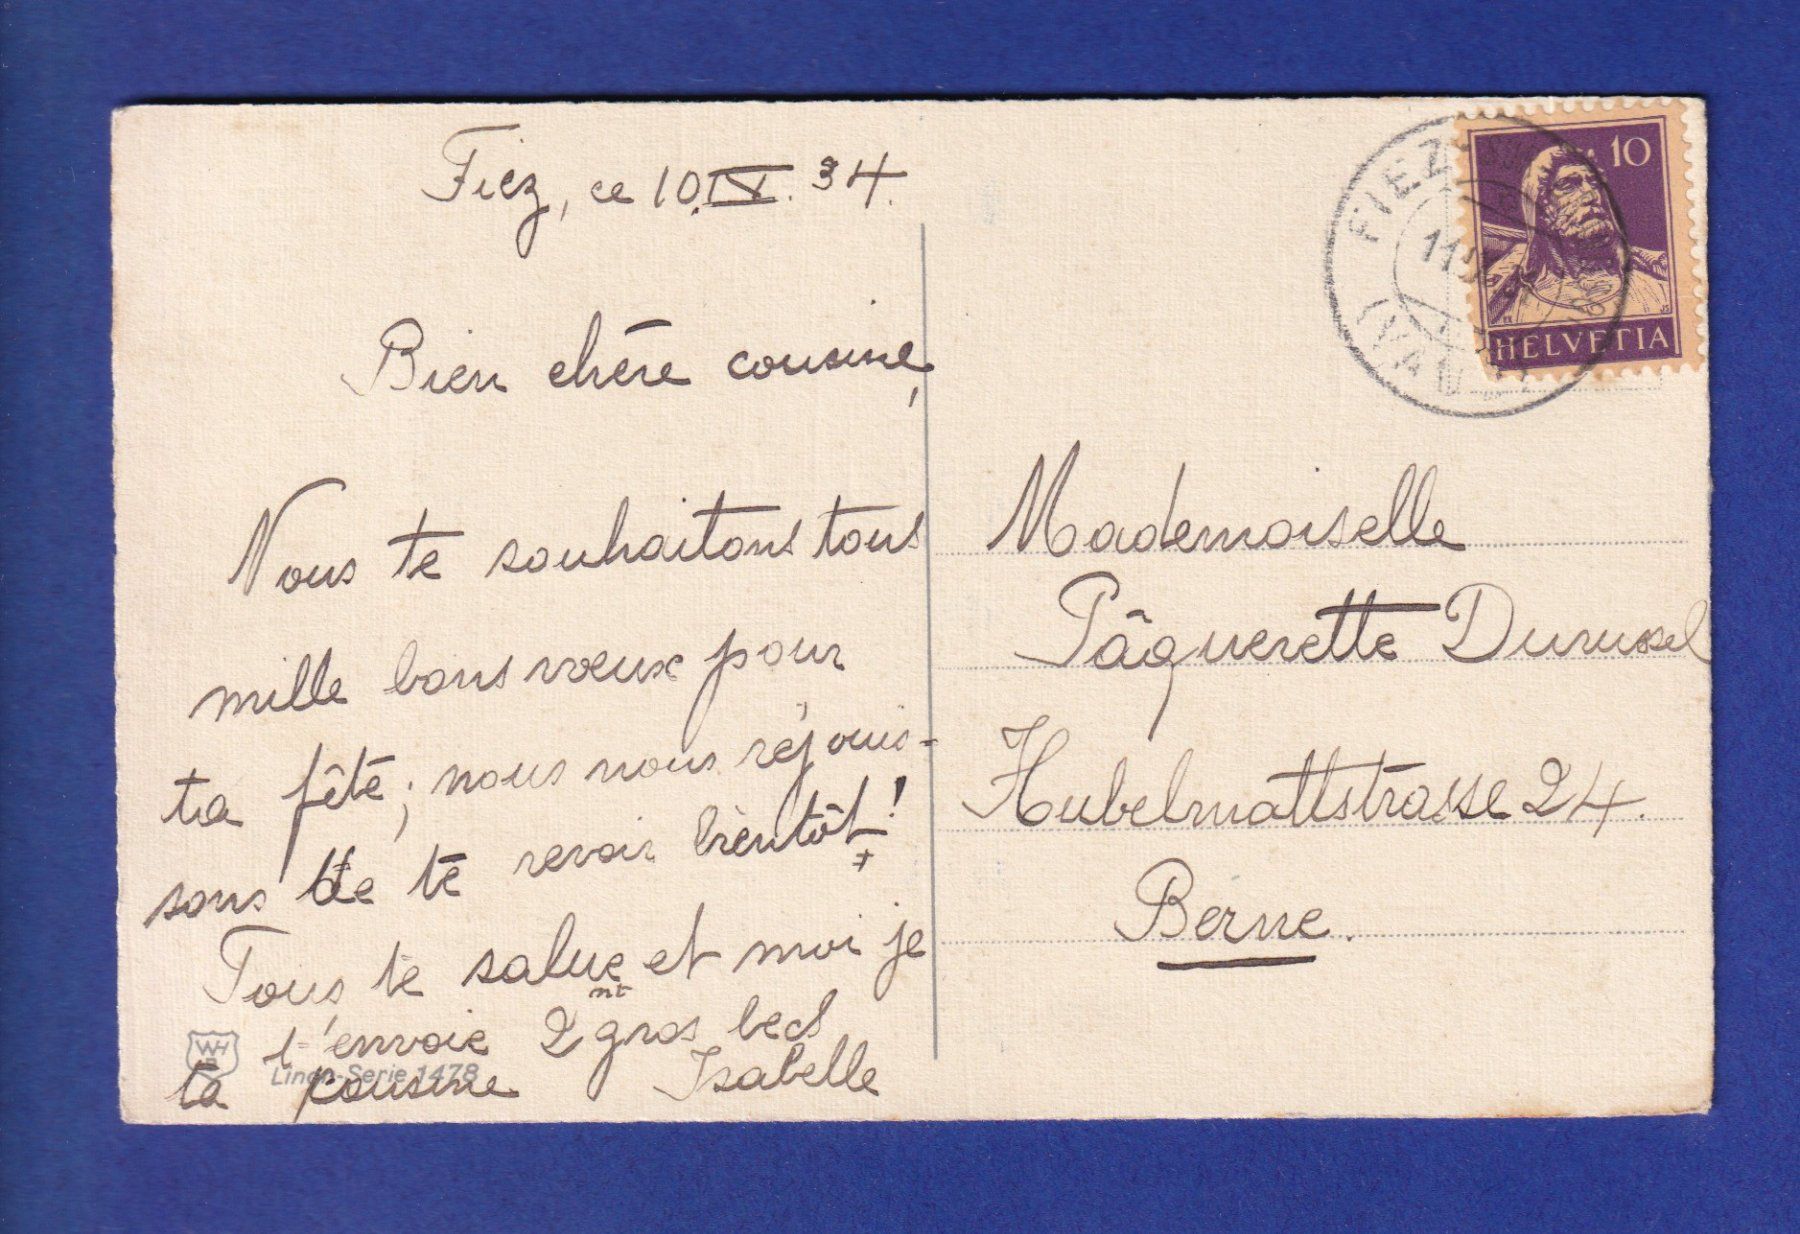 Fiez, ce 10.IX.34.
Bien chère cousine,
Nous te souhaitons tous
mille bons vœux pour
ta fête; nous nous réjouis-
sons de te revoir bientôt!
Tous te saluent et moi je
t'envoie 2 gros becs
ta cousine Isabelle
WH
Linen-Serie 1478
FIEZ
(VAUD)
11.IX
10
HELVETIA
Mademoiselle
Pâquerette Durussel
Hubelmattstrasse 24.
Berne.